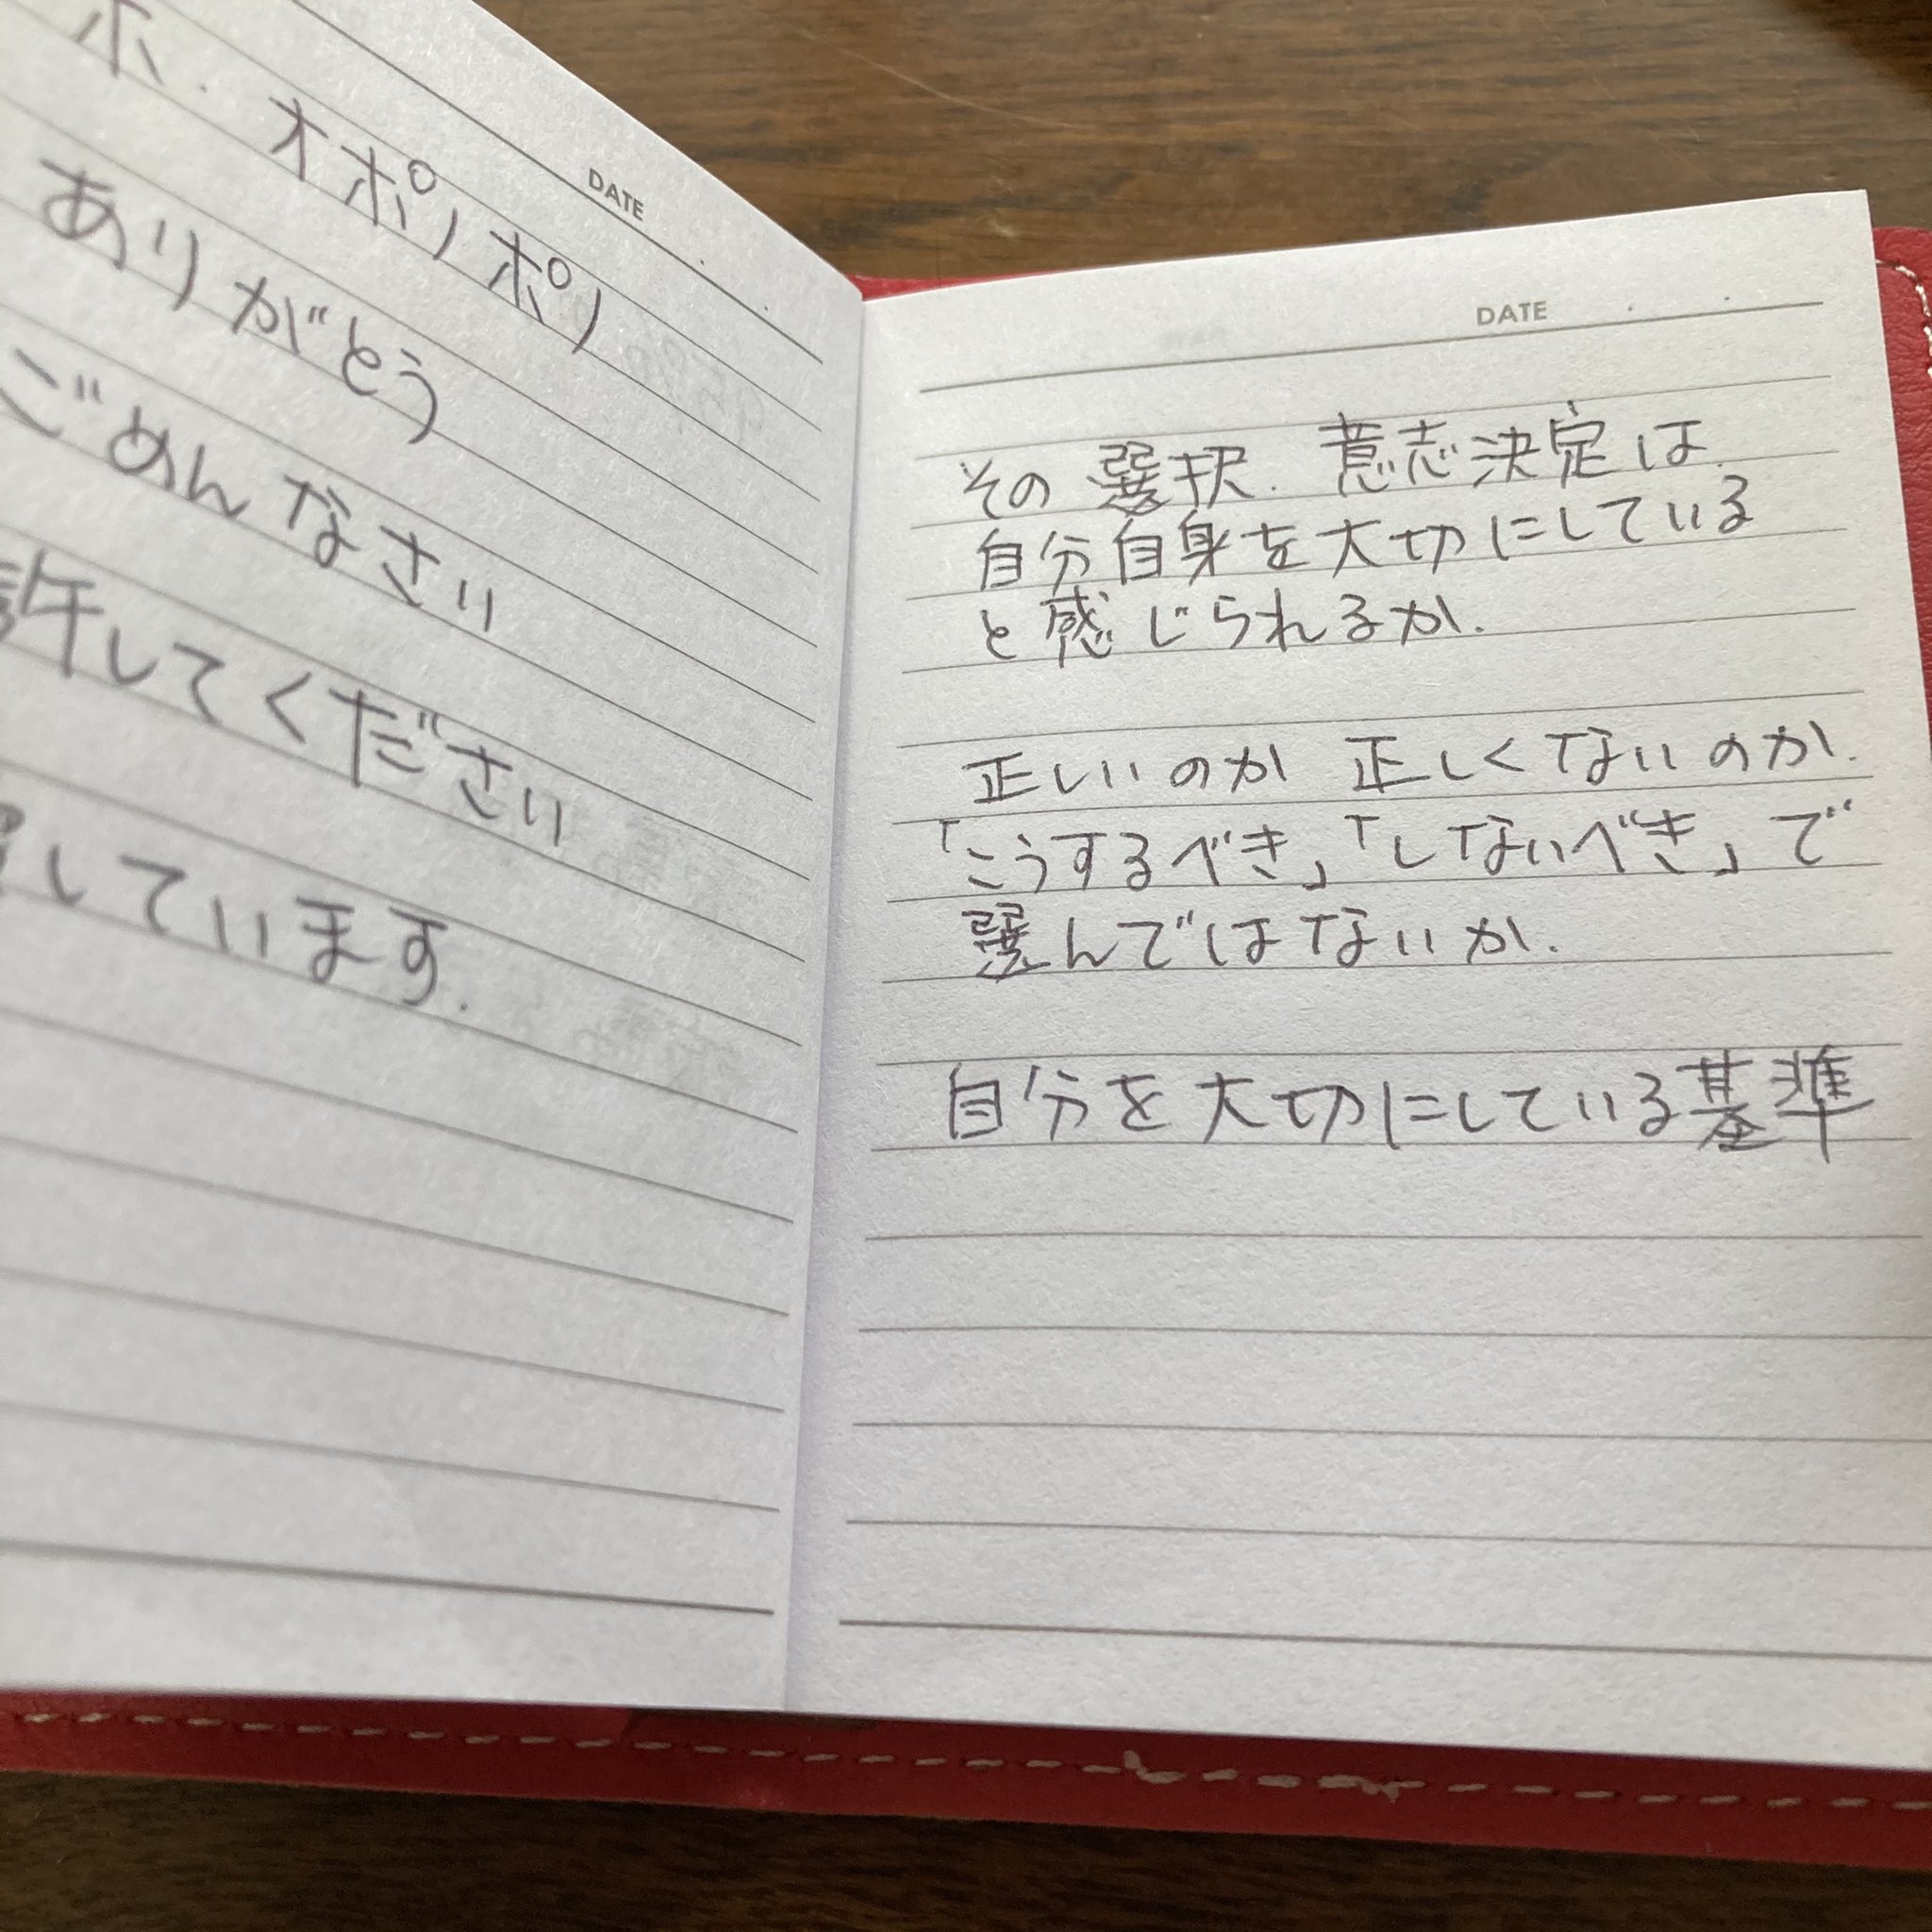 ホ.オポノポノ
ありがとう
ごめんなさい
許してください
しています.
DATE
DATE
その選択.意志決定は.
自分自身を大切にしている
と感じられるか.
正しいのか 正しくないのか.
「こうするべき」「しないべき」で
選んではないか.
自分を大切にしている基準